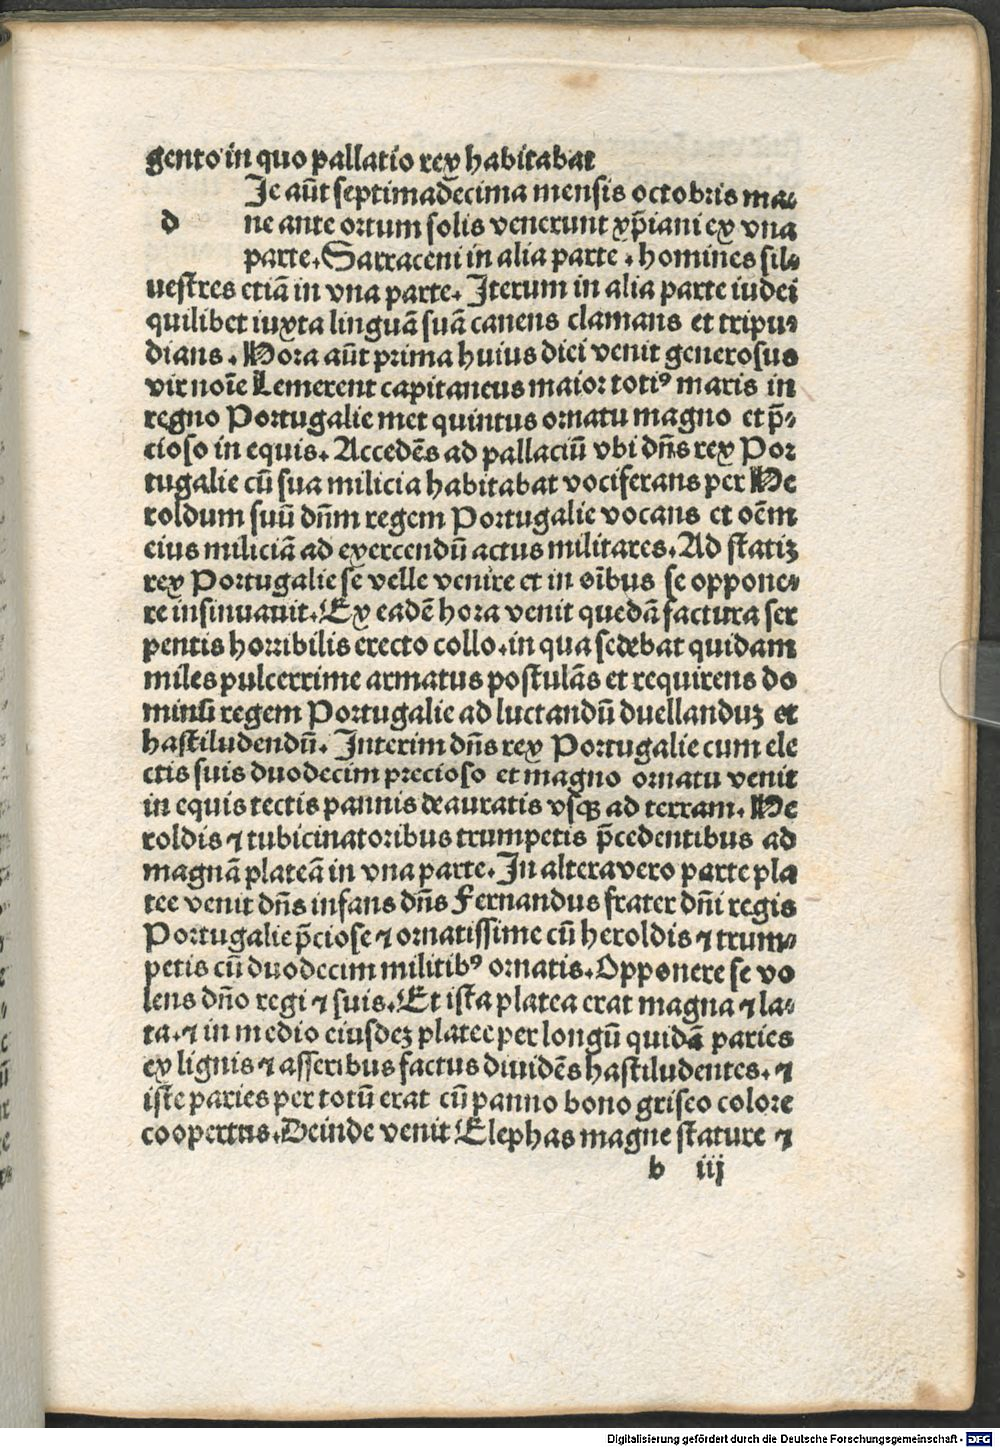 gento in quo pallatio rex habitabat
Je aūt septimadecima mensis octobris ma⸗
d ne ante ortum solis venerunt xp̄iani ex vna
parte. Sarraceni in alia parte . homines sil⸗
uestres etiā in vna parte. Iterum in alia parte iudei
quilibet iuxta linguā suā canens clamans et tripu⸗
dians . Hora aūt prima huius diei venit generosus
vir noīe Lemerent capitaneus maior totiꝰ maris in
regno Portugalie met quintus ornatu magno et p̄⸗
cioso in equis. Accedēs ad pallaciū vbi dn̄s rex Por
tugalie cū sua milicia habitabat vociferans per He
roldum suū dn̄m regem Portugalie vocans et oēm
eius miliciā ad exercendū actus militares. Ad statiꝫ
rex Portugalie se velle venire et in oībus se oppone⸗
re insinuauit. Ex eadē hora venit quedā factura ser
pentis horribilis erecto collo. in qua sedebat quidam
miles pulcerrime armatus postulās et requirens do
minū regem Portugalie ad luctandū duellanduꝫ et
hastiludendū. Interim dn̄s rex Portugalie cum ele
ctis suis duodecim precioso et magno ornatu venit
in equis tectis pannis deauratis vsqꝫ ad terram. He
roldis ⁊ tubicinatoribus trumpetis p̄cedentibus ad
magnā plateā in vna parte. In altera vero parte pla
tee venit dn̄s infans dn̄s Fernandus frater dn̄i regis
Portugalie p̄ciose ⁊ ornatissime cū heroldis ⁊ trum⸗
petis cū duodecim militibꝰ ornatis. Opponere se vo
lens dn̄o regi ⁊ suis. Et ista platea erat magna ⁊ la⸗
ta. ⁊ in medio eiusdeꝫ platee per longū quidā paries
ex lignis ⁊ asseribus factus diuidēs hastiludentes. ⁊
iste paries per totū erat cū panno bono griseo colore
coopertus. Deinde venit Elephas magne stature ⁊
b iij
Digitalisierung gefördert durch die Deutsche Forschungsgemeinschaft - DFG